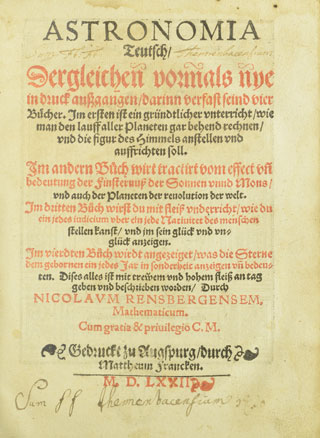 ASTRONOMIA
Teutsch/
Dergleichen vormals nye
in druck außgangen/darinn verfast seind vier
Bücher. Im ersten ist ein gründtlicher vnterricht/wie
man den lauff aller Planeten gar behend rechnen/
vnd die figur des Himmels anstellen vnd
auffrichten soll.
Im andern Bůch wirt tractirt vom effect vñ
bedeutung der Finsternuß der Sonnen vnnd Mons/
vnd auch der Planeten der reuolution der welt.
Im dritten Bůch wirst du mit fleiß vnderricht/wie du
ein jedes iudicium vber ein jede Natiuitet des menschen
stellen kanst/ vnd jm sein glück vnd vn-
glück anzeigen.
Im vierdten Bůch wiedt angezeiget/was die Sterne
dem gebornen ein jedes Jar in sonderheit anzeigen vñ beden-
ten. Dises alles ist mit trewem vnd hohem fleiß an tag
geben vnd beschrieben worden/ Durch
NICOLAVM RENSBERGENSEM,
Mathematicum.
Cum gratia & priuilegio C. M.
Gedruckt zu Augspurg/durch
Mattheum Francken.
M. D. LXXII
Sum ff themenbacensium